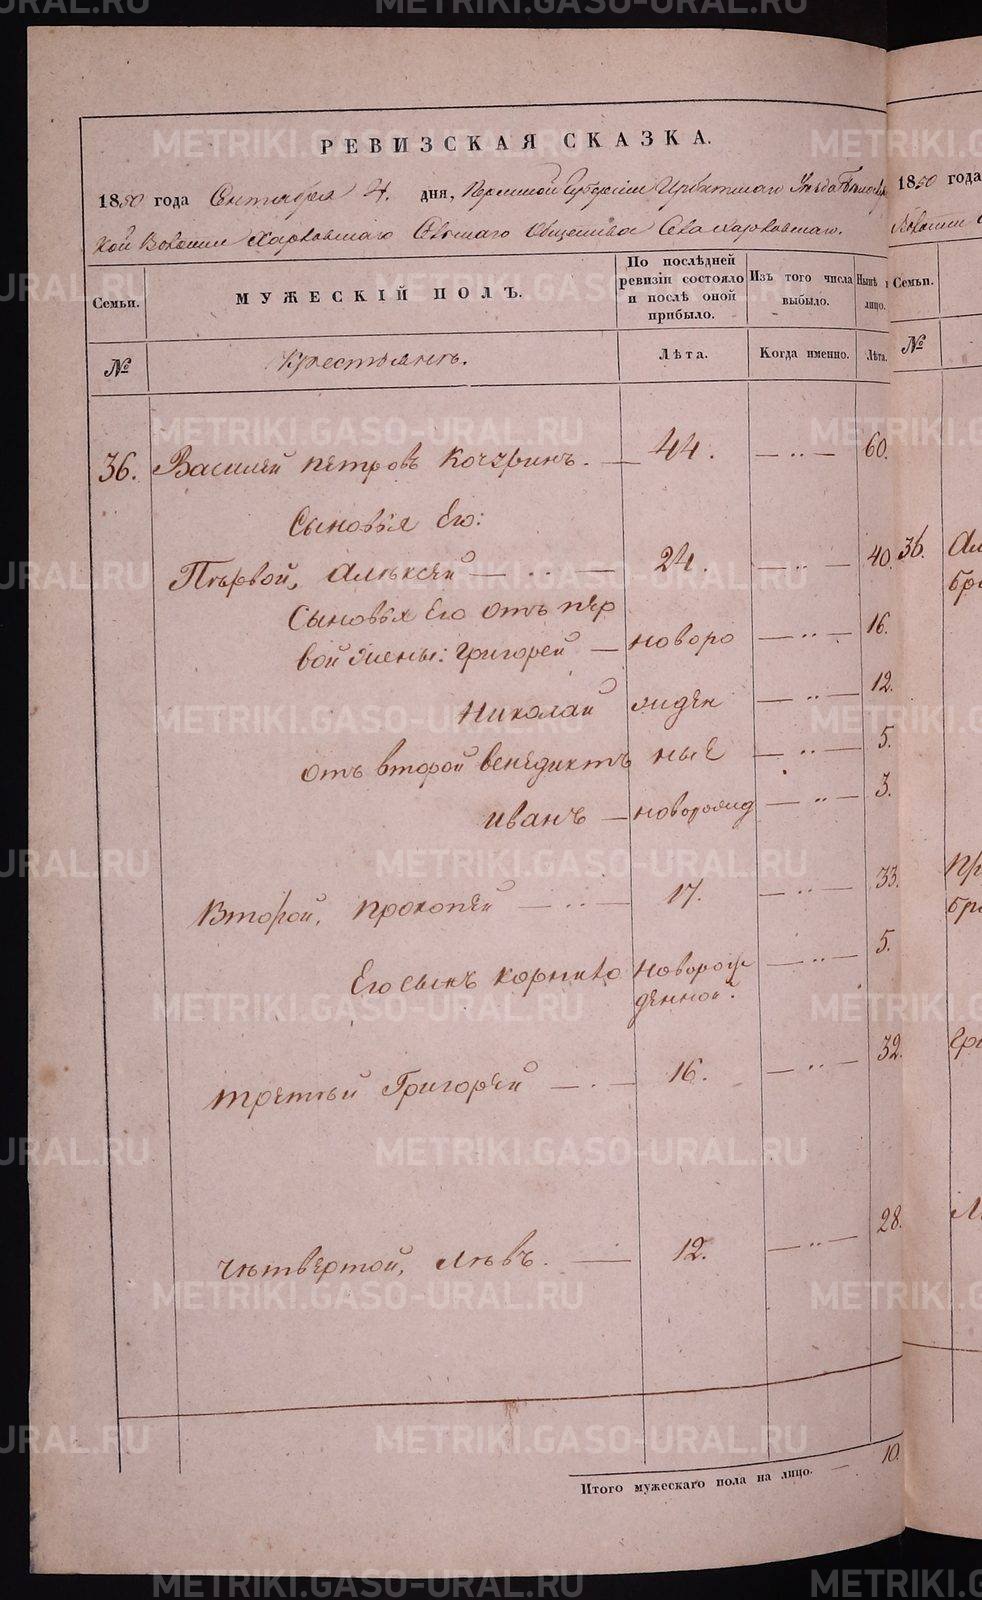 РЕВИЗСКАЯ СКАЗКА.
1850 года Сентября 4. дня, Пермской Губернии Ирбитскаго Уезда
кой Волости Харловскаго Сельскаго Общества Села Харловскаго.
Семьи.
МУЖЕСКІЙ ПОЛЪ.
По послѣдней ревизіи состояло и послѣ оной прибыло.
Изъ того числа выбыло.
Нынѣ на лицо.
№
Крестьянъ.
Лѣта.
Когда именно.
Лѣта.
36. Василей Петровъ Кочуринъ. — 44. — „ — 60.
Сыновья Его:
Первой, Алексей — „ — 24. — „ — 40.
Сыновья Его отъ пер
вой жены: Григорей — новоро — „ — 16.
Николай жден — „ — 12.
отъ второй Венедиктъ ные — „ — 5.
Иванъ — новорожд — „ — 3.
Второй, Прокопей — „ — 17. — „ — 33.
Его сынъ Корнило новорож — „ — 5.
денной.
третьй Григорей — „ — 16. — „ — 32.
четвертой, Левъ. — 12. — „ — 28.
Итого мужескаго пола на лицо. — 10.
1850 года
Волости
Семьи.
№
36.
бра
бра
METRIKI.GASO-URAL.RU